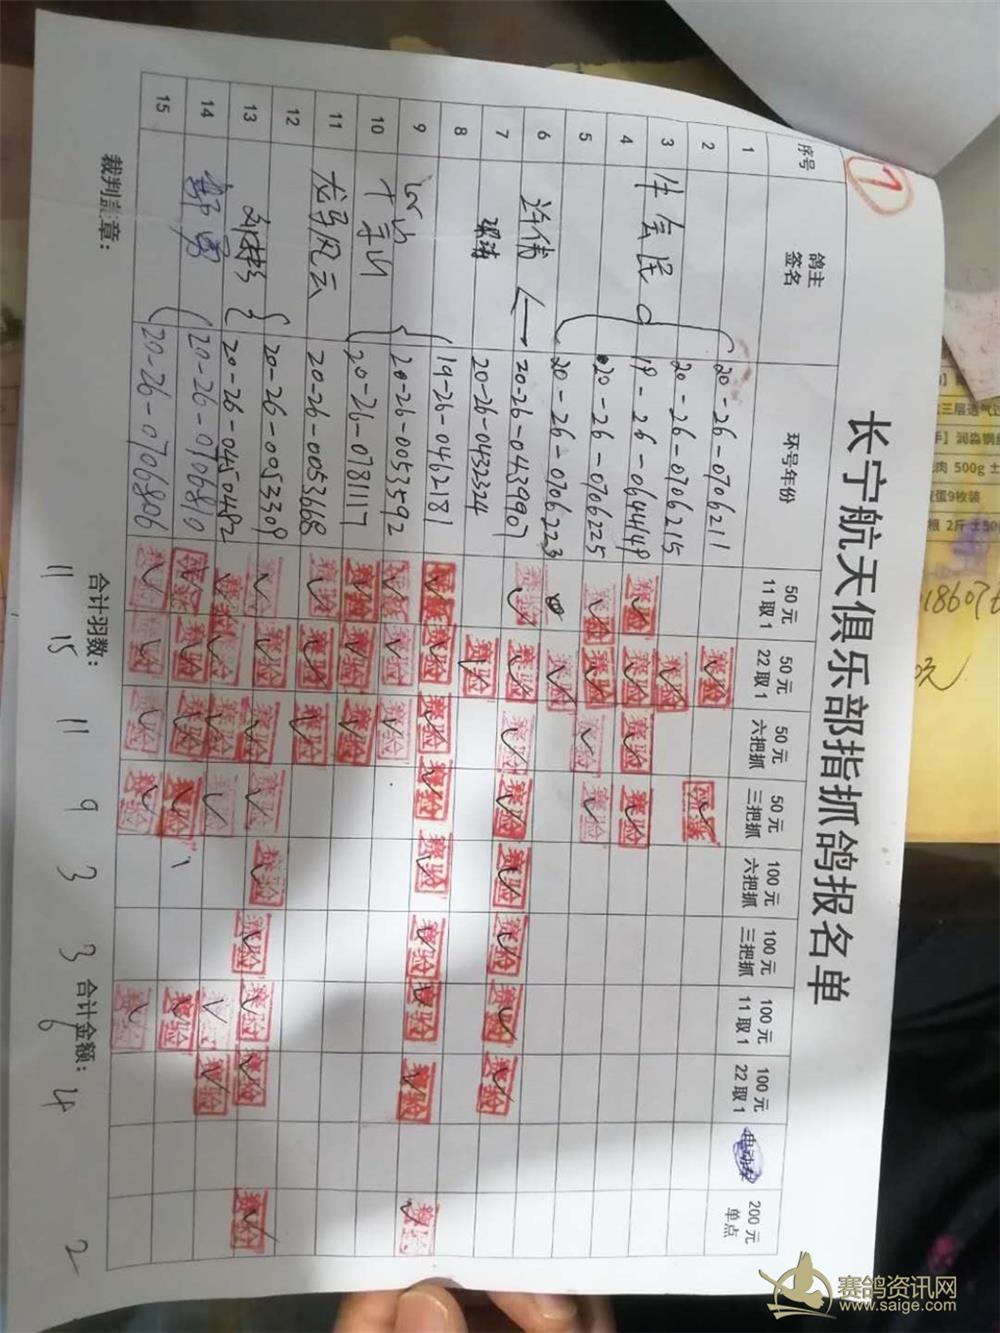 7
长宁航天俱乐部指抓鸽报名单
序号 鸽主签名 环号年份 50元11取1 50元22取1 50元六把抓 50元三把抓 100元六把抓 100元三把抓 100元11取1 100元22取1 200元单点
1 20-26-0706211
2 20-26-0706215
3 牛金民 19-26-0644149
4 20-26-0706225
5 20-26-0706223
6 许伟 20-26-0439907
7 20-26-0432324
8 19-26-0462181
9 20-26-0053592
10 20-26-0781117
11 龙马风云 20-26-0053168
12 20-26-0053309
13 20-26-0450482
14 20-26-0706810
15 20-26-0706806
裁判盖章：
合计羽数：
11 15 11 9 3 3 6 4 2
合计金额：
三层透气
润淼钢
肉 500g ±
蛋9枚装
根 2斤 ±50
赛鸽资讯网
www.saige.com